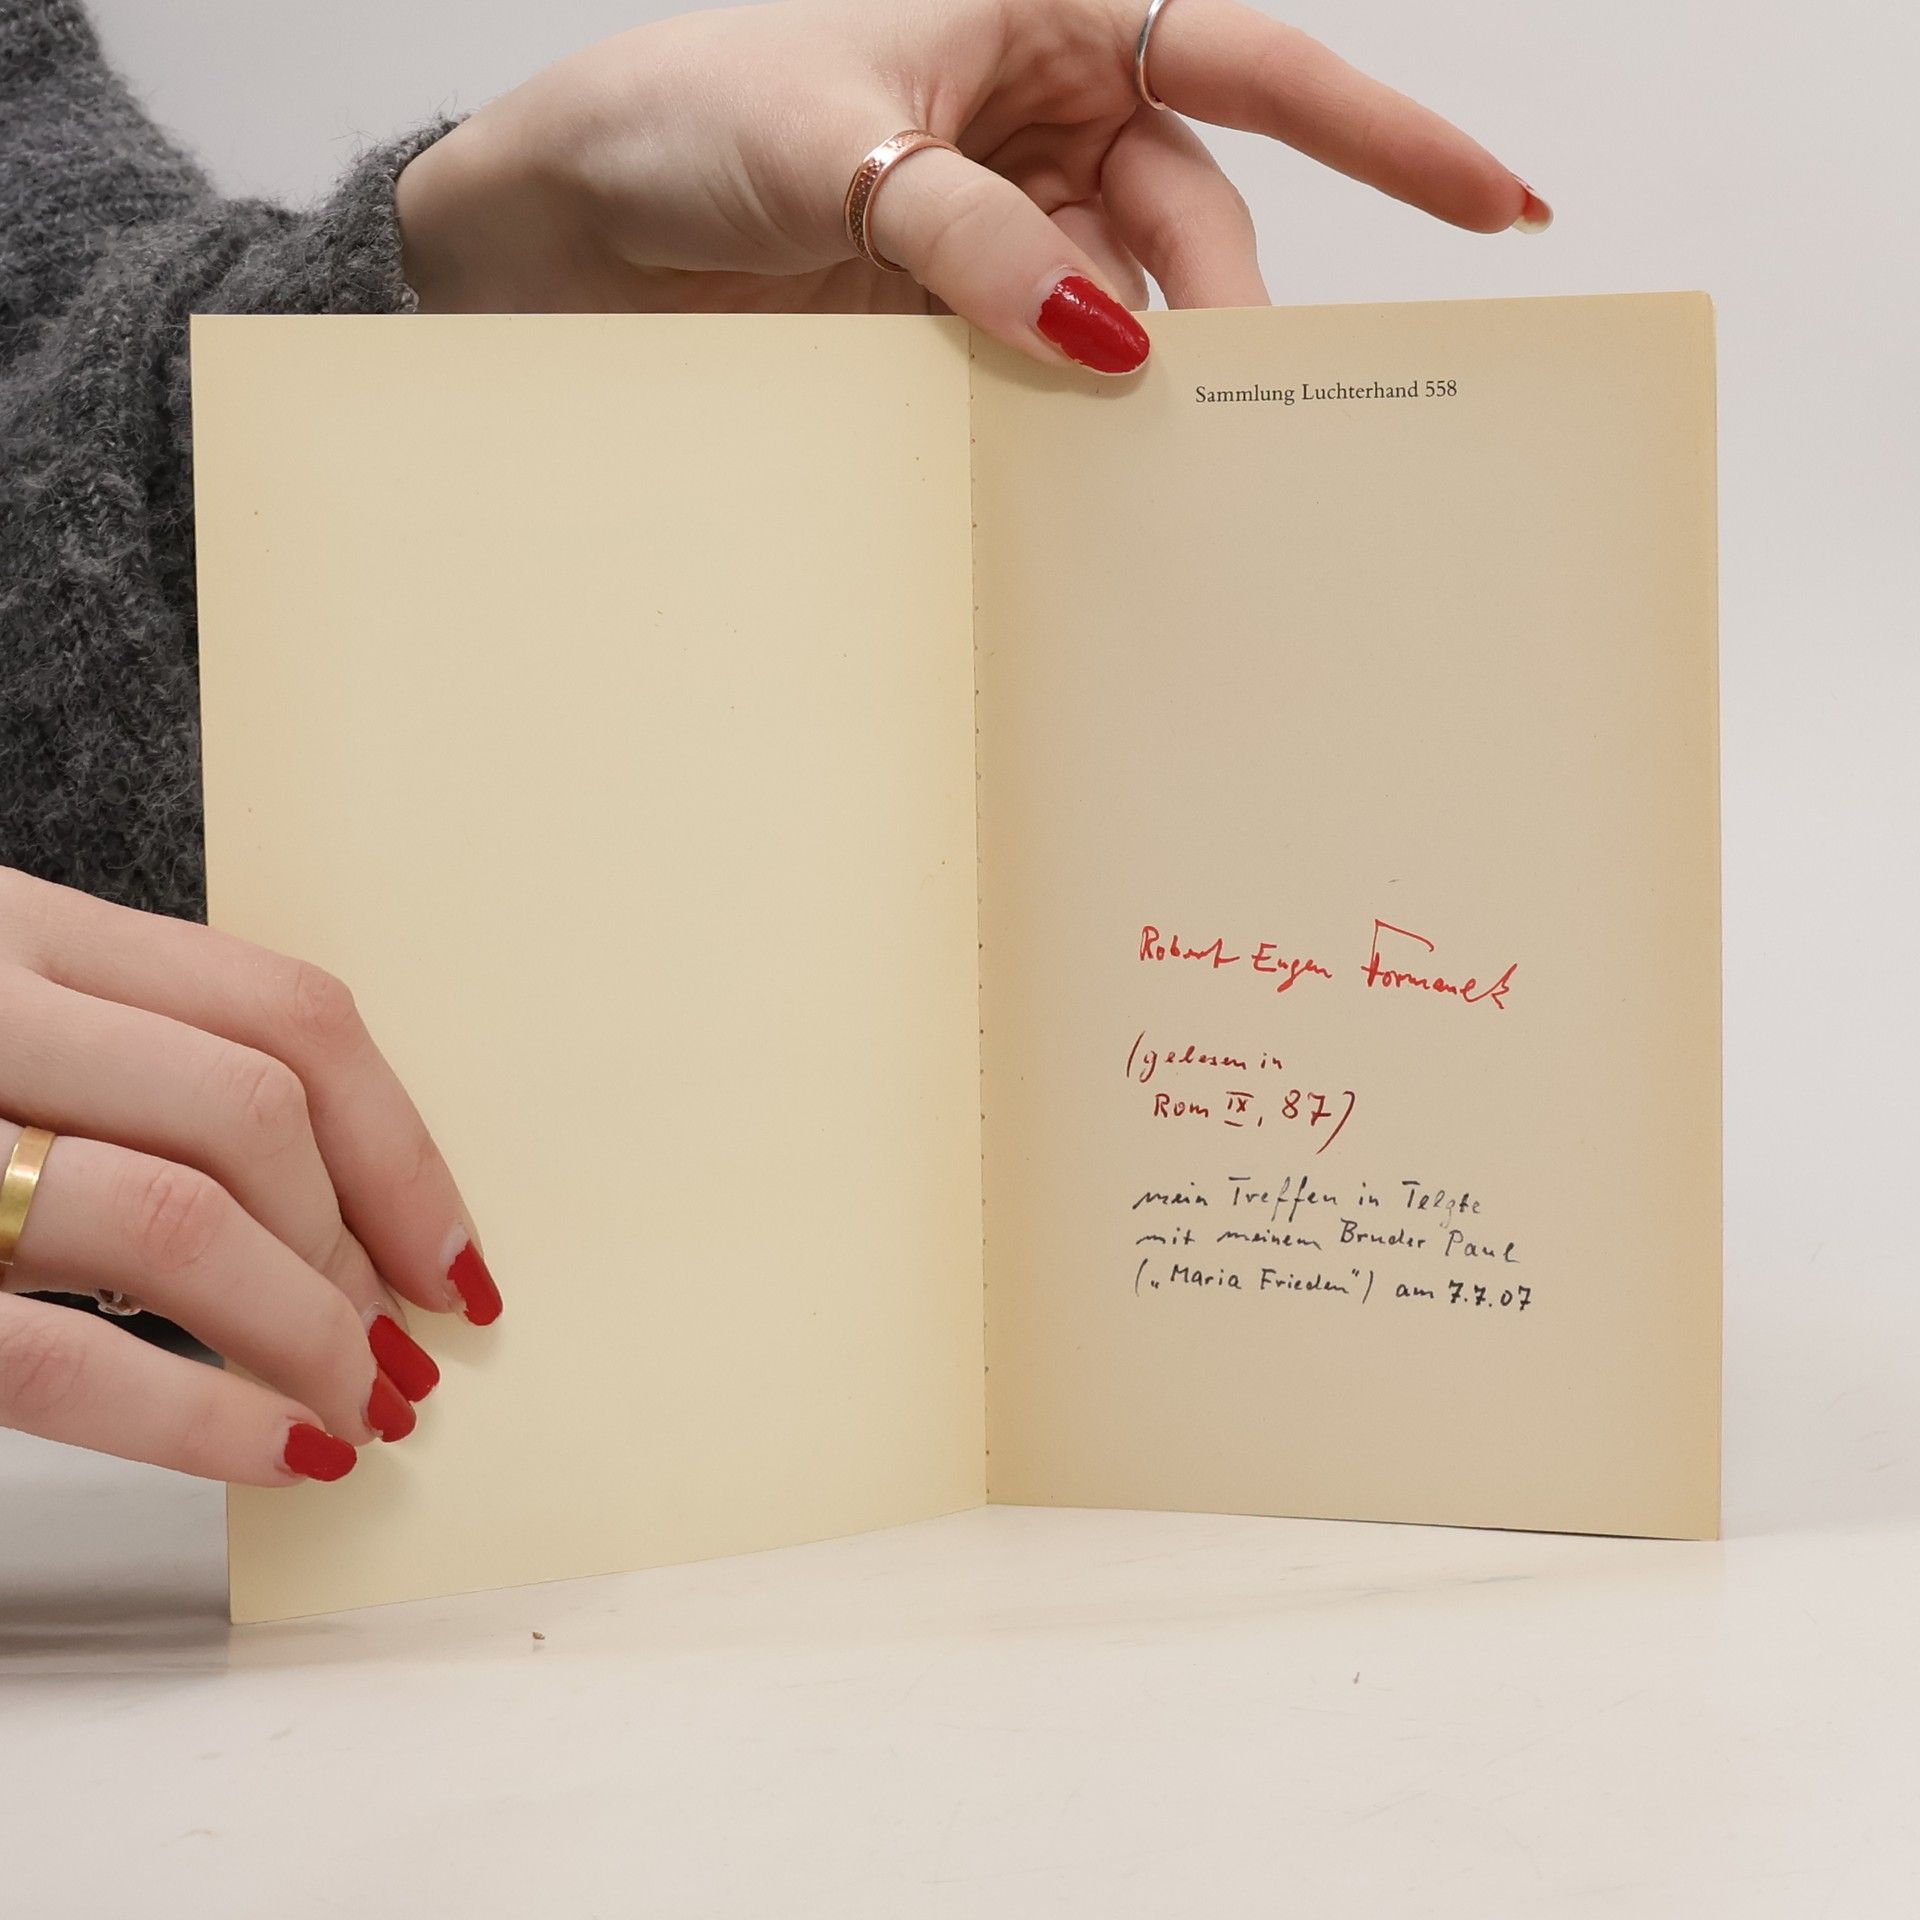 Sammlung Luchterhand 558
Robert Eugen Formanek
(gelesen in
Rom IX, 87)
mein Treffen in Telgte
mit meinem Bruder Paul
(„Maria Frieden") am 7.7.07